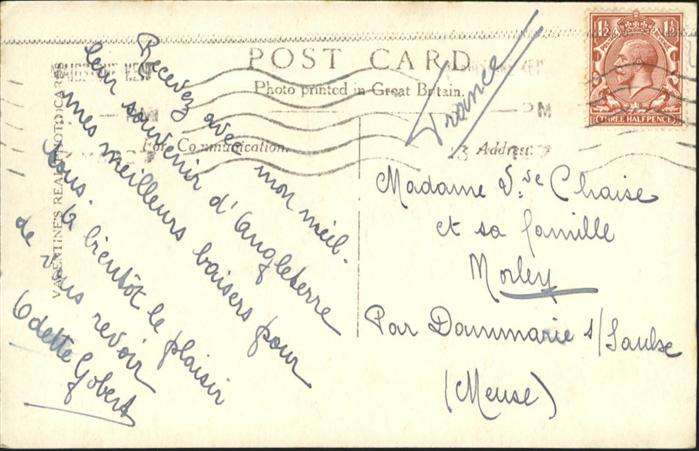 POST CARD
Photo printed in Great Britain.
For Communication.
Address.
VALENTINE'S REAL PHOTO CARDS
1½ 1½
THREE HALFPENCE
PM
France
Recevez avec mon meil-
leur souvenir d'Angleterre
mes meilleurs baisers pour
tous.
A bientôt le plaisir
de vous revoir
Odette Gobert
Madame Vve Chaise
et sa famille
Morley
Par Dammarie s/Saulxe
(Meuse)